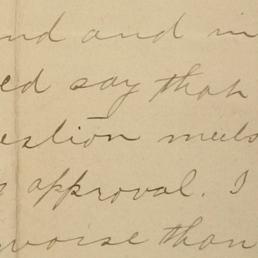 and and in
ed say that
estion meets
approval. I
worse than